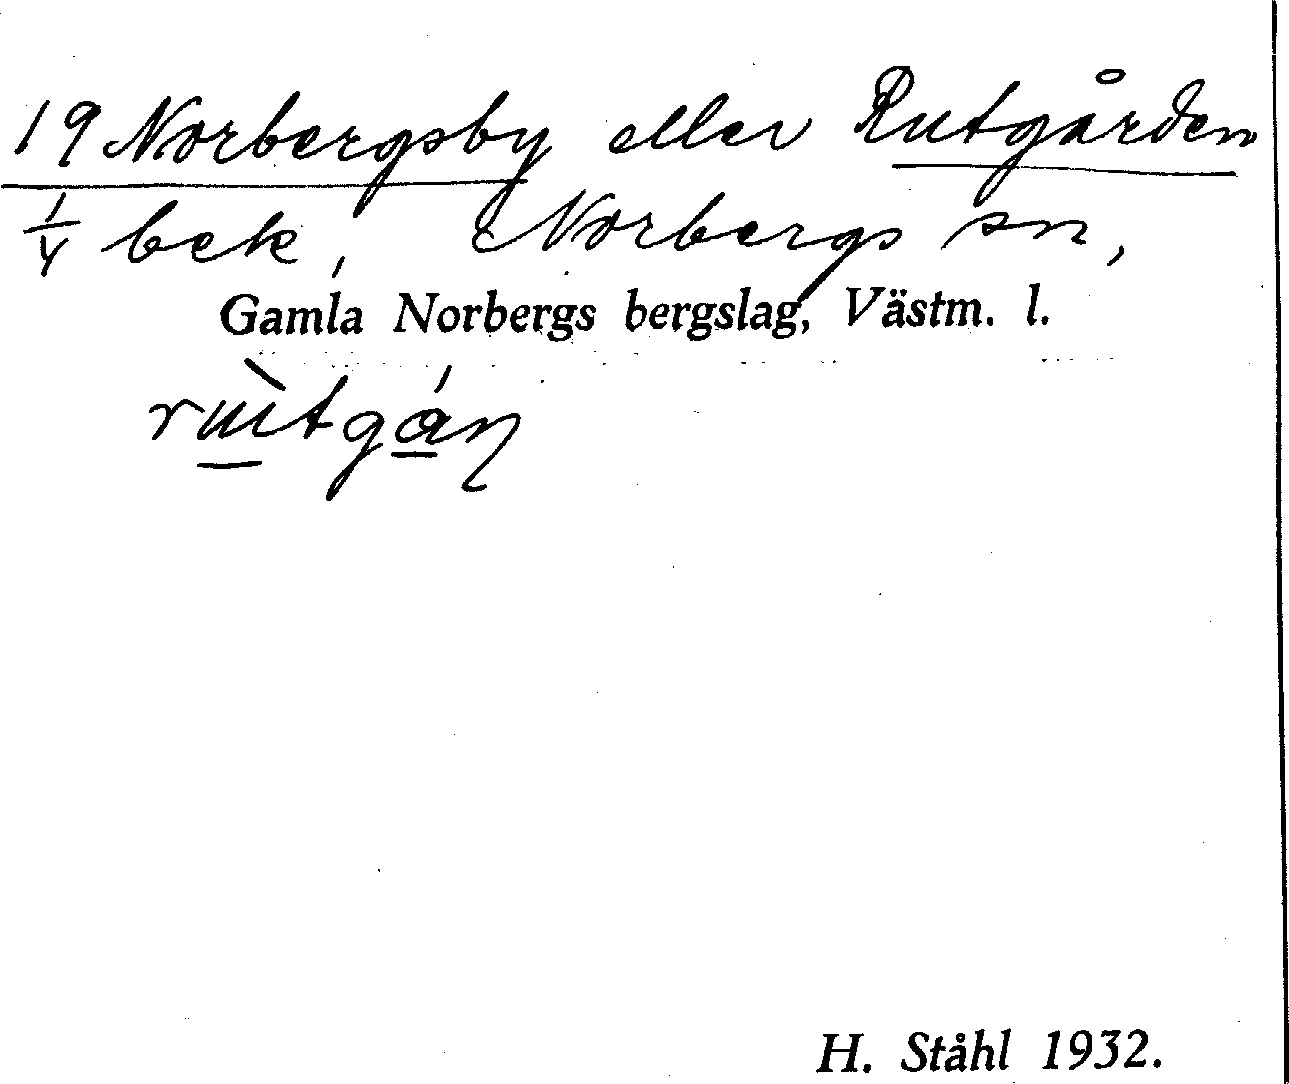 19 Norbergsby eller Rutgården
1/4 bek, Norbergs sn,
Gamla Norbergs bergslag, Västm. l.
H. Ståhl 1932.